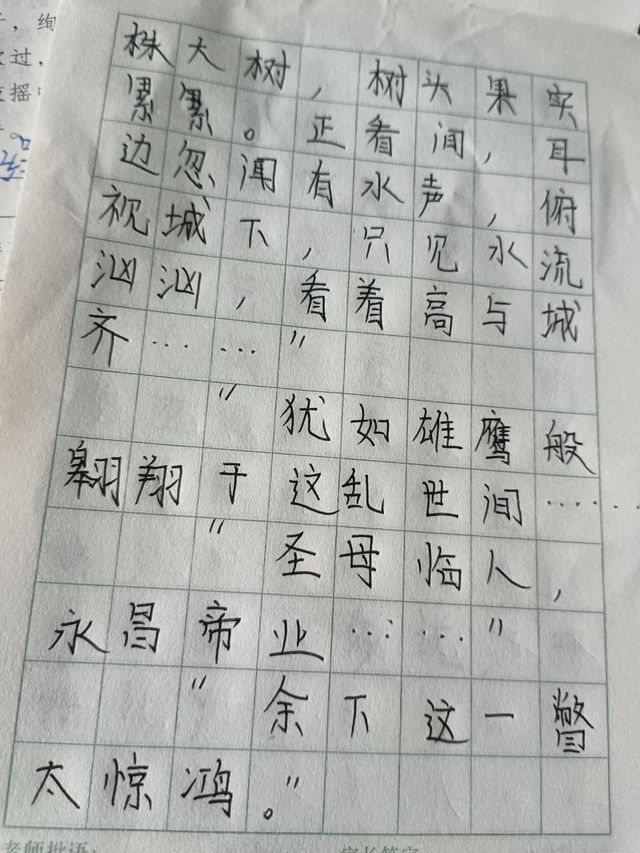 ，绚
过，
摇
。
株大树，树头果实
累累。正看间，耳
边忽闻有水声，俯
视城下，只见水流
汹汹，看着高与城
齐……”
“犹如雄鹰般
翱翔于这乱世间……
“圣母临人，
永昌帝业……”
“余下这一瞥
太惊鸿。”
老师批语：
家长签字